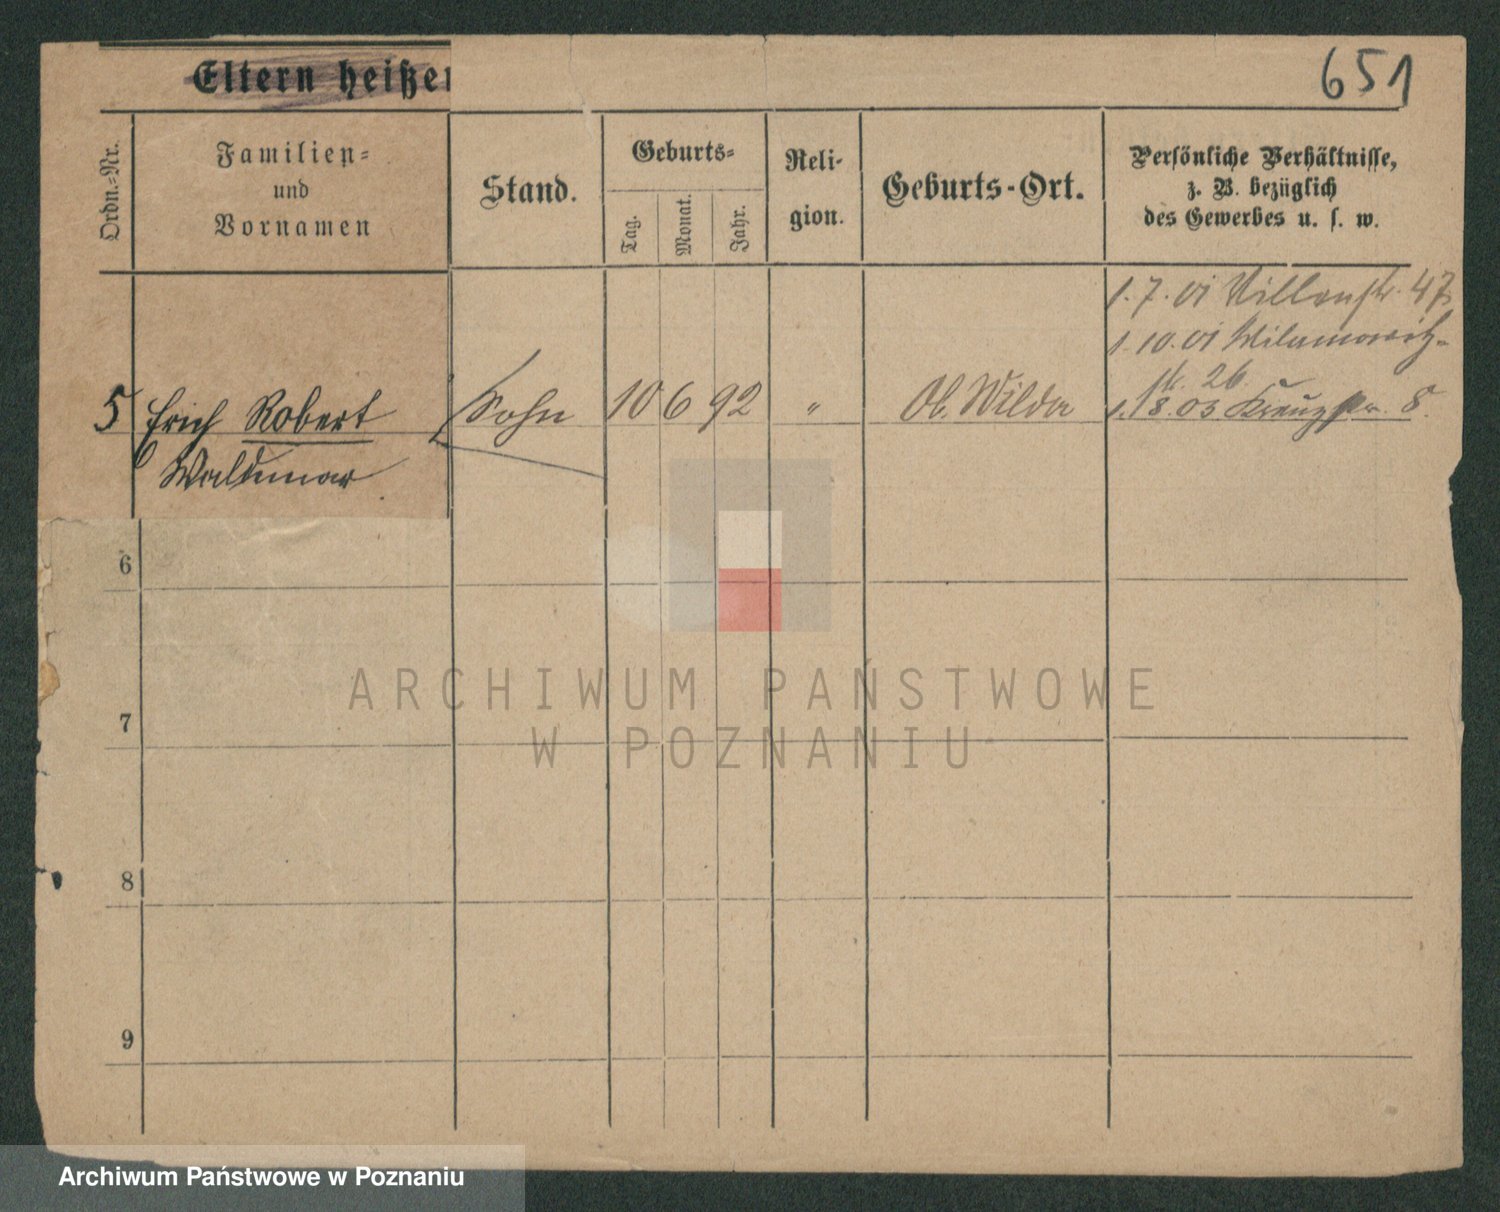 Eltern heißen
651
Ordn.-Nr.
Familien-
und
Vornamen
Stand.
Geburts-
Tag.
Monat.
Jahr.
Reli-
gion.
Geburts-Ort.
Persönliche Verhältnisse,
z. B. bezüglich
des Gewerbes u. s. w.
1.7.01 Villenstr. 47
1.10.01 Wilamowitz-
str. 26.
5 Erich Robert Sohn 10 6 92 " Ob. Wilda 1.8.03 Kreuzstr. 8.
Waldemar
6
7
8
9
ARCHIWUM PAŃSTWOWE
W POZNANIU
Archiwum Państwowe w Poznaniu